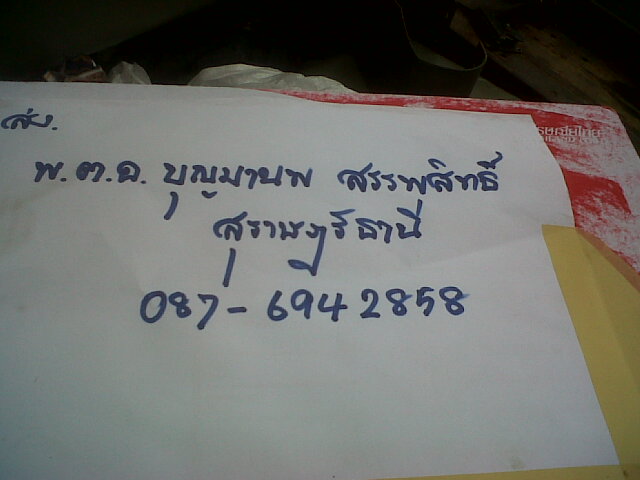 ส่ง.
พ.ต.ด. บุญมานพ สรรพสิทธิ์
สุราษฎร์ธานี
087-6942858